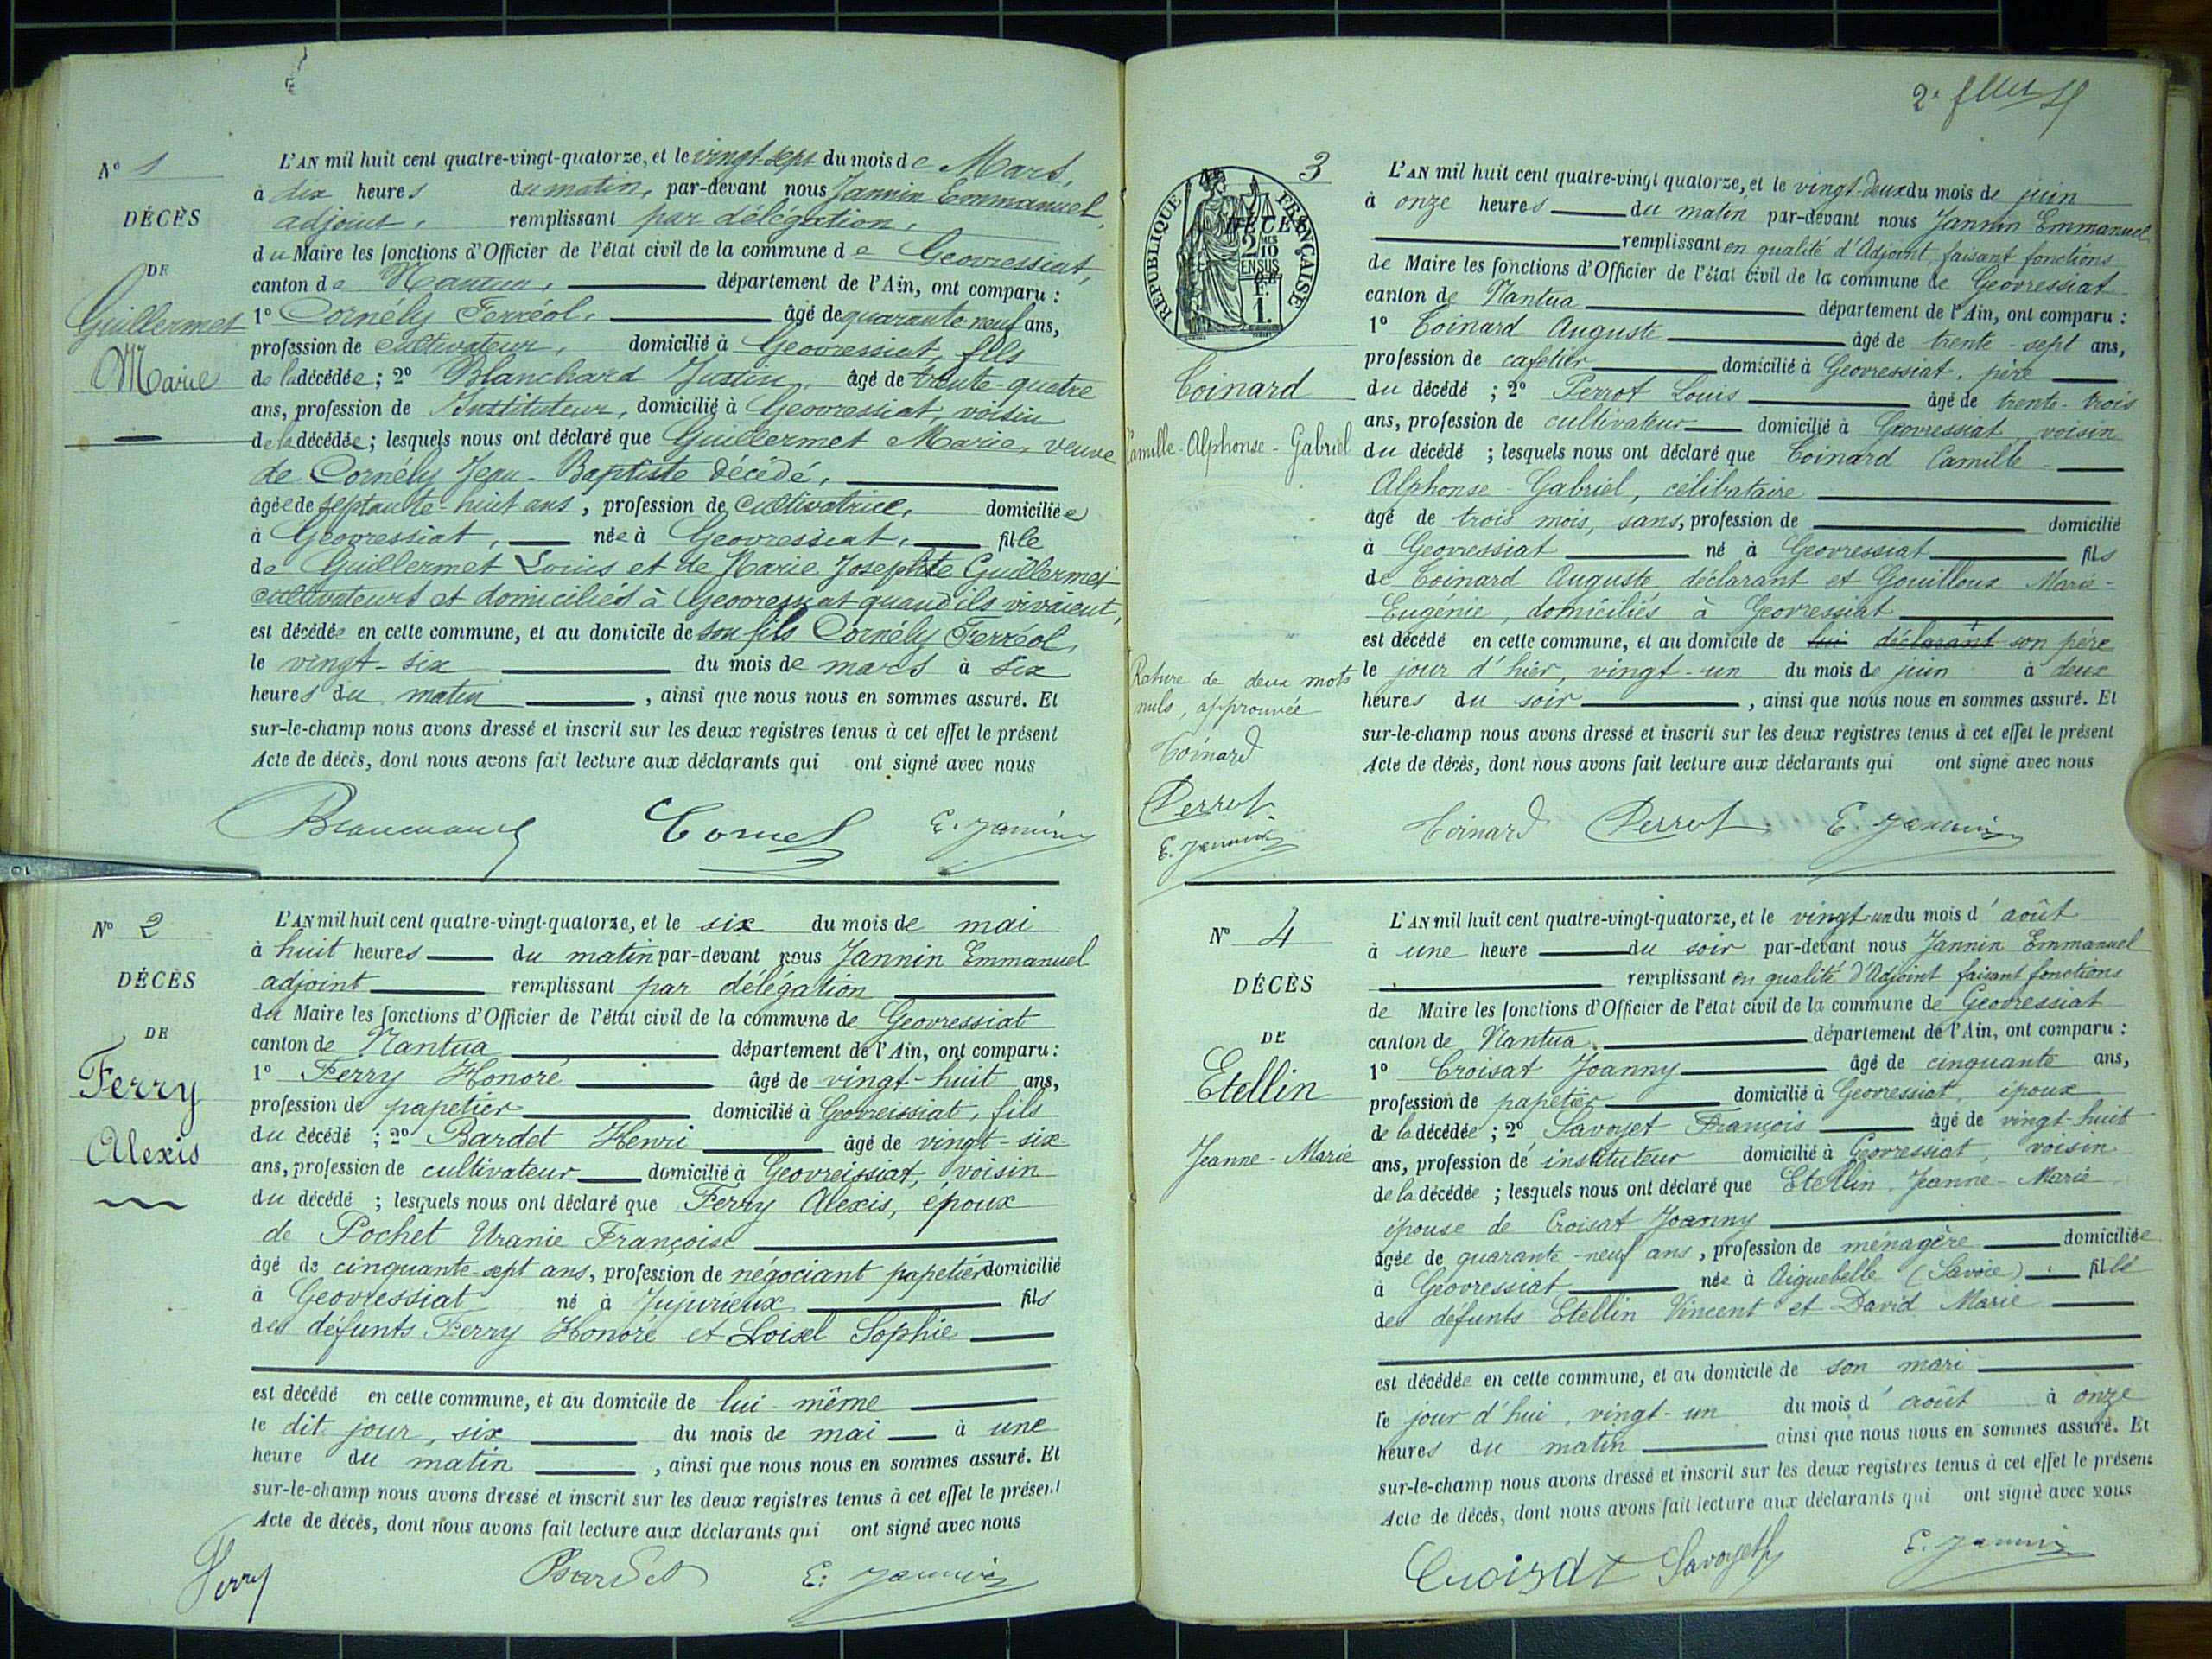 N° 1
DÉCÈS
DE
Guillermet
Marie
L'AN mil huit cent quatre-vingt-quatorze, et le vingt-sept du mois de Mars,
à dix heures du matin, par-devant nous Jannin Emmanuel,
adjoint, remplissant par délégation,
du Maire les fonctions d'Officier de l'état civil de la commune de Geovressiat,
canton de Nantua, département de l'Ain, ont comparu :
1° Cornély Ferréol, âgé de quarante-neuf ans,
profession de cultivateur, domicilié à Geovressiat, fils
de la décédée ; 2° Blanchard Justin, âgé de trente-quatre
ans, profession de Instituteur, domicilié à Geovressiat, voisin
de la décédée ; lesquels nous ont déclaré que Guillermet Marie, veuve
de Cornély Jean-Baptiste décédé,
âgée de septante-huit ans, profession de cultivatrice, domiciliée
à Geovressiat, née à Geovressiat, fille
de Guillermet Louis et de Marie Josephte Guillermet
cultivateurs et domiciliés à Geovressiat quand ils vivaient,
est décédée en cette commune, et au domicile de son fils Cornély Ferréol,
le vingt-six du mois de mars à six
heures du matin, ainsi que nous nous en sommes assuré. Et
sur-le-champ nous avons dressé et inscrit sur les deux registres tenus à cet effet le présent
Acte de décès, dont nous avons fait lecture aux déclarants qui ont signé avec nous
E. Jannin
N° 2
DÉCÈS
DE
Ferry
Alexis
L'AN mil huit cent quatre-vingt-quatorze, et le six du mois de mai
à huit heures du matin par-devant nous Jannin Emmanuel
adjoint remplissant par délégation
du Maire les fonctions d'Officier de l'état civil de la commune de Geovressiat
canton de Nantua département de l'Ain, ont comparu :
1° Ferry Honoré âgé de vingt-huit ans,
profession de papetier domicilié à Geovreissiat, fils
du décédé ; 2° Bardet Henri âgé de vingt-six
ans, profession de cultivateur domicilié à Geovreissiat, voisin
du décédé ; lesquels nous ont déclaré que Ferry Alexis, époux
de Pochet Uranie Françoise
âgé de cinquante-sept ans, profession de négociant papetier domicilié
à Geovressiat né à Jujurieux fils
des défunts Ferry Honoré et Loisel Sophie
est décédé en cette commune, et au domicile de lui-même
le dit jour, six du mois de mai à une
heure du matin, ainsi que nous nous en sommes assuré. Et
sur-le-champ nous avons dressé et inscrit sur les deux registres tenus à cet effet le présent
Acte de décès, dont nous avons fait lecture aux déclarants qui ont signé avec nous
Ferry Bardet E. Jannin
3
RÉPUBLIQUE FRANÇAISE
2 MES 10
EN SUS
1.
Coinard
Camille-Alphonse-Gabriel
L'AN mil huit cent quatre-vingt quatorze, et le vingt-deux du mois de juin
à onze heures du matin par-devant nous Jannin Emmanuel
remplissant en qualité d'Adjoint, faisant fonctions
de Maire les fonctions d'Officier de l'état civil de la commune de Geovressiat
canton de Nantua département de l'Ain, ont comparu :
1° Coinard Auguste âgé de trente-sept ans,
profession de cafetier domicilié à Geovressiat, père
du décédé ; 2° Perrot Louis âgé de trente-trois
ans, profession de cultivateur domicilié à Geovressiat voisin
du décédé ; lesquels nous ont déclaré que Coinard Camille-
Alphonse-Gabriel, célibataire
âgé de trois mois, sans, profession de domicilié
à Geovressiat né à Geovressiat fils
de Coinard Auguste, déclarant et Gouilloux Marie-
Eugénie, domiciliés à Geovressiat
est décédé en cette commune, et au domicile de lui déclarant son père
le jour d'hier, vingt-un du mois de juin à deux
heures du soir, ainsi que nous nous en sommes assuré. Et
sur-le-champ nous avons dressé et inscrit sur les deux registres tenus à cet effet le présent
Acte de décès, dont nous avons fait lecture aux déclarants qui ont signé avec nous
Rature de deux mots
nuls, approuvée
Coinard
Perrot
E. Jannin
Coinard Perrot E. Jannin
N° 4
DÉCÈS
DE
Etellin
Jeanne-Marie
L'AN mil huit cent quatre-vingt-quatorze, et le vingt-un du mois d'août
à une heure du soir par-devant nous Jannin Emmanuel
remplissant en qualité d'Adjoint faisant fonctions
de Maire les fonctions d'Officier de l'état civil de la commune de Geovressiat
canton de Nantua département de l'Ain, ont comparu :
1° Croisat Joanny âgé de cinquante ans,
profession de papetier domicilié à Geovressiat, époux
de la décédée ; 2° Savoyet François âgé de vingt-huit
ans, profession de instituteur domicilié à Geovressiat, voisin
de la décédée ; lesquels nous ont déclaré que Etellin, Jeanne-Marie
épouse de Croisat Joanny
âgée de quarante-neuf ans, profession de ménagère domiciliée
à Geovressiat née à Aiguebelle (Savoie) fille
des défunts Etellin Vincent et David Marie
est décédée en cette commune, et au domicile de son mari
le jour d'hui, vingt-un du mois d'août à onze
heures du matin ainsi que nous nous en sommes assuré. Et
sur-le-champ nous avons dressé et inscrit sur les deux registres tenus à cet effet le présent
Acte de décès, dont nous avons fait lecture aux déclarants qui ont signé avec nous
Croisat Savoyet E. Jannin